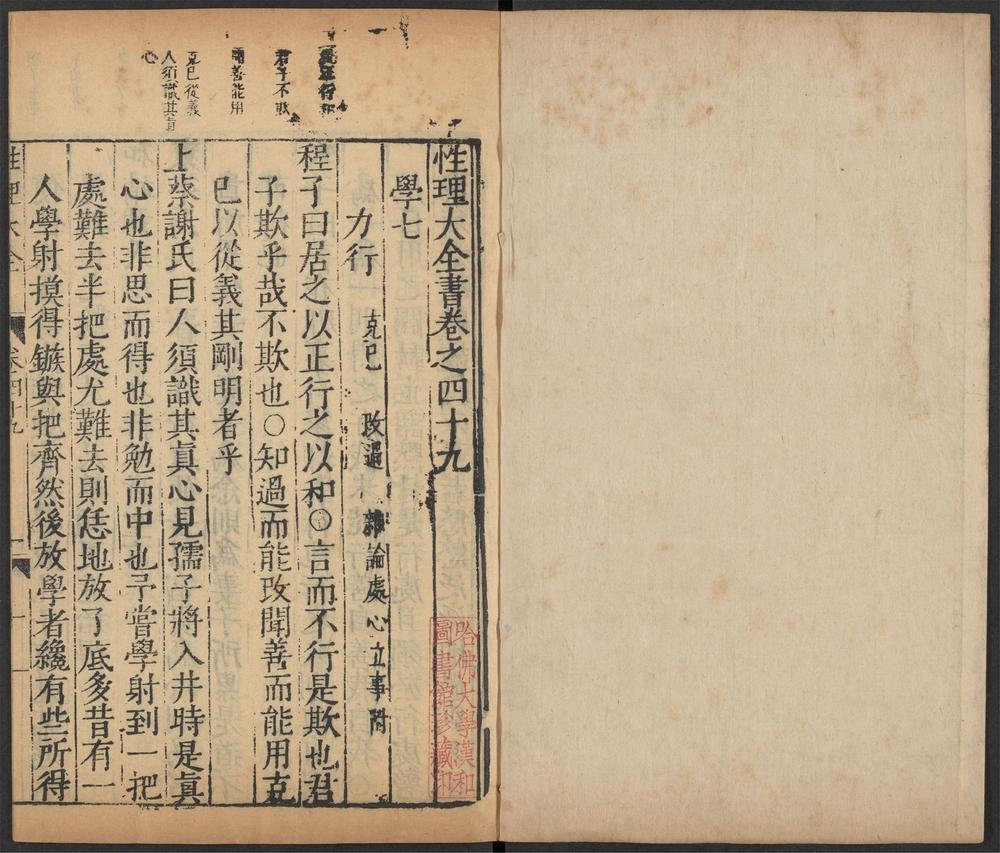 居正行和
君子不欺
聞善能用
克己從義
人須識其眞
心
性理大全書卷之四十九
學七
力行 克已 攺過 雜論處心立事附
程子曰居之以正行之以和○言而不行是欺也君
子欺乎哉不欺也○知過而能攺聞善而能用克
已以從義其剛明者乎
上蔡謝氏曰人須識其眞心見孺子將入井時是眞
心也非思而得也非勉而中也予嘗學射到一把
處難去半把處尤難去則恁地放了底多昔有一
人學射摸得鏃與把齊然後放學者纔有些所得
性理大全 卷四十九 一
哈佛大學漢和
圖書館珍藏印